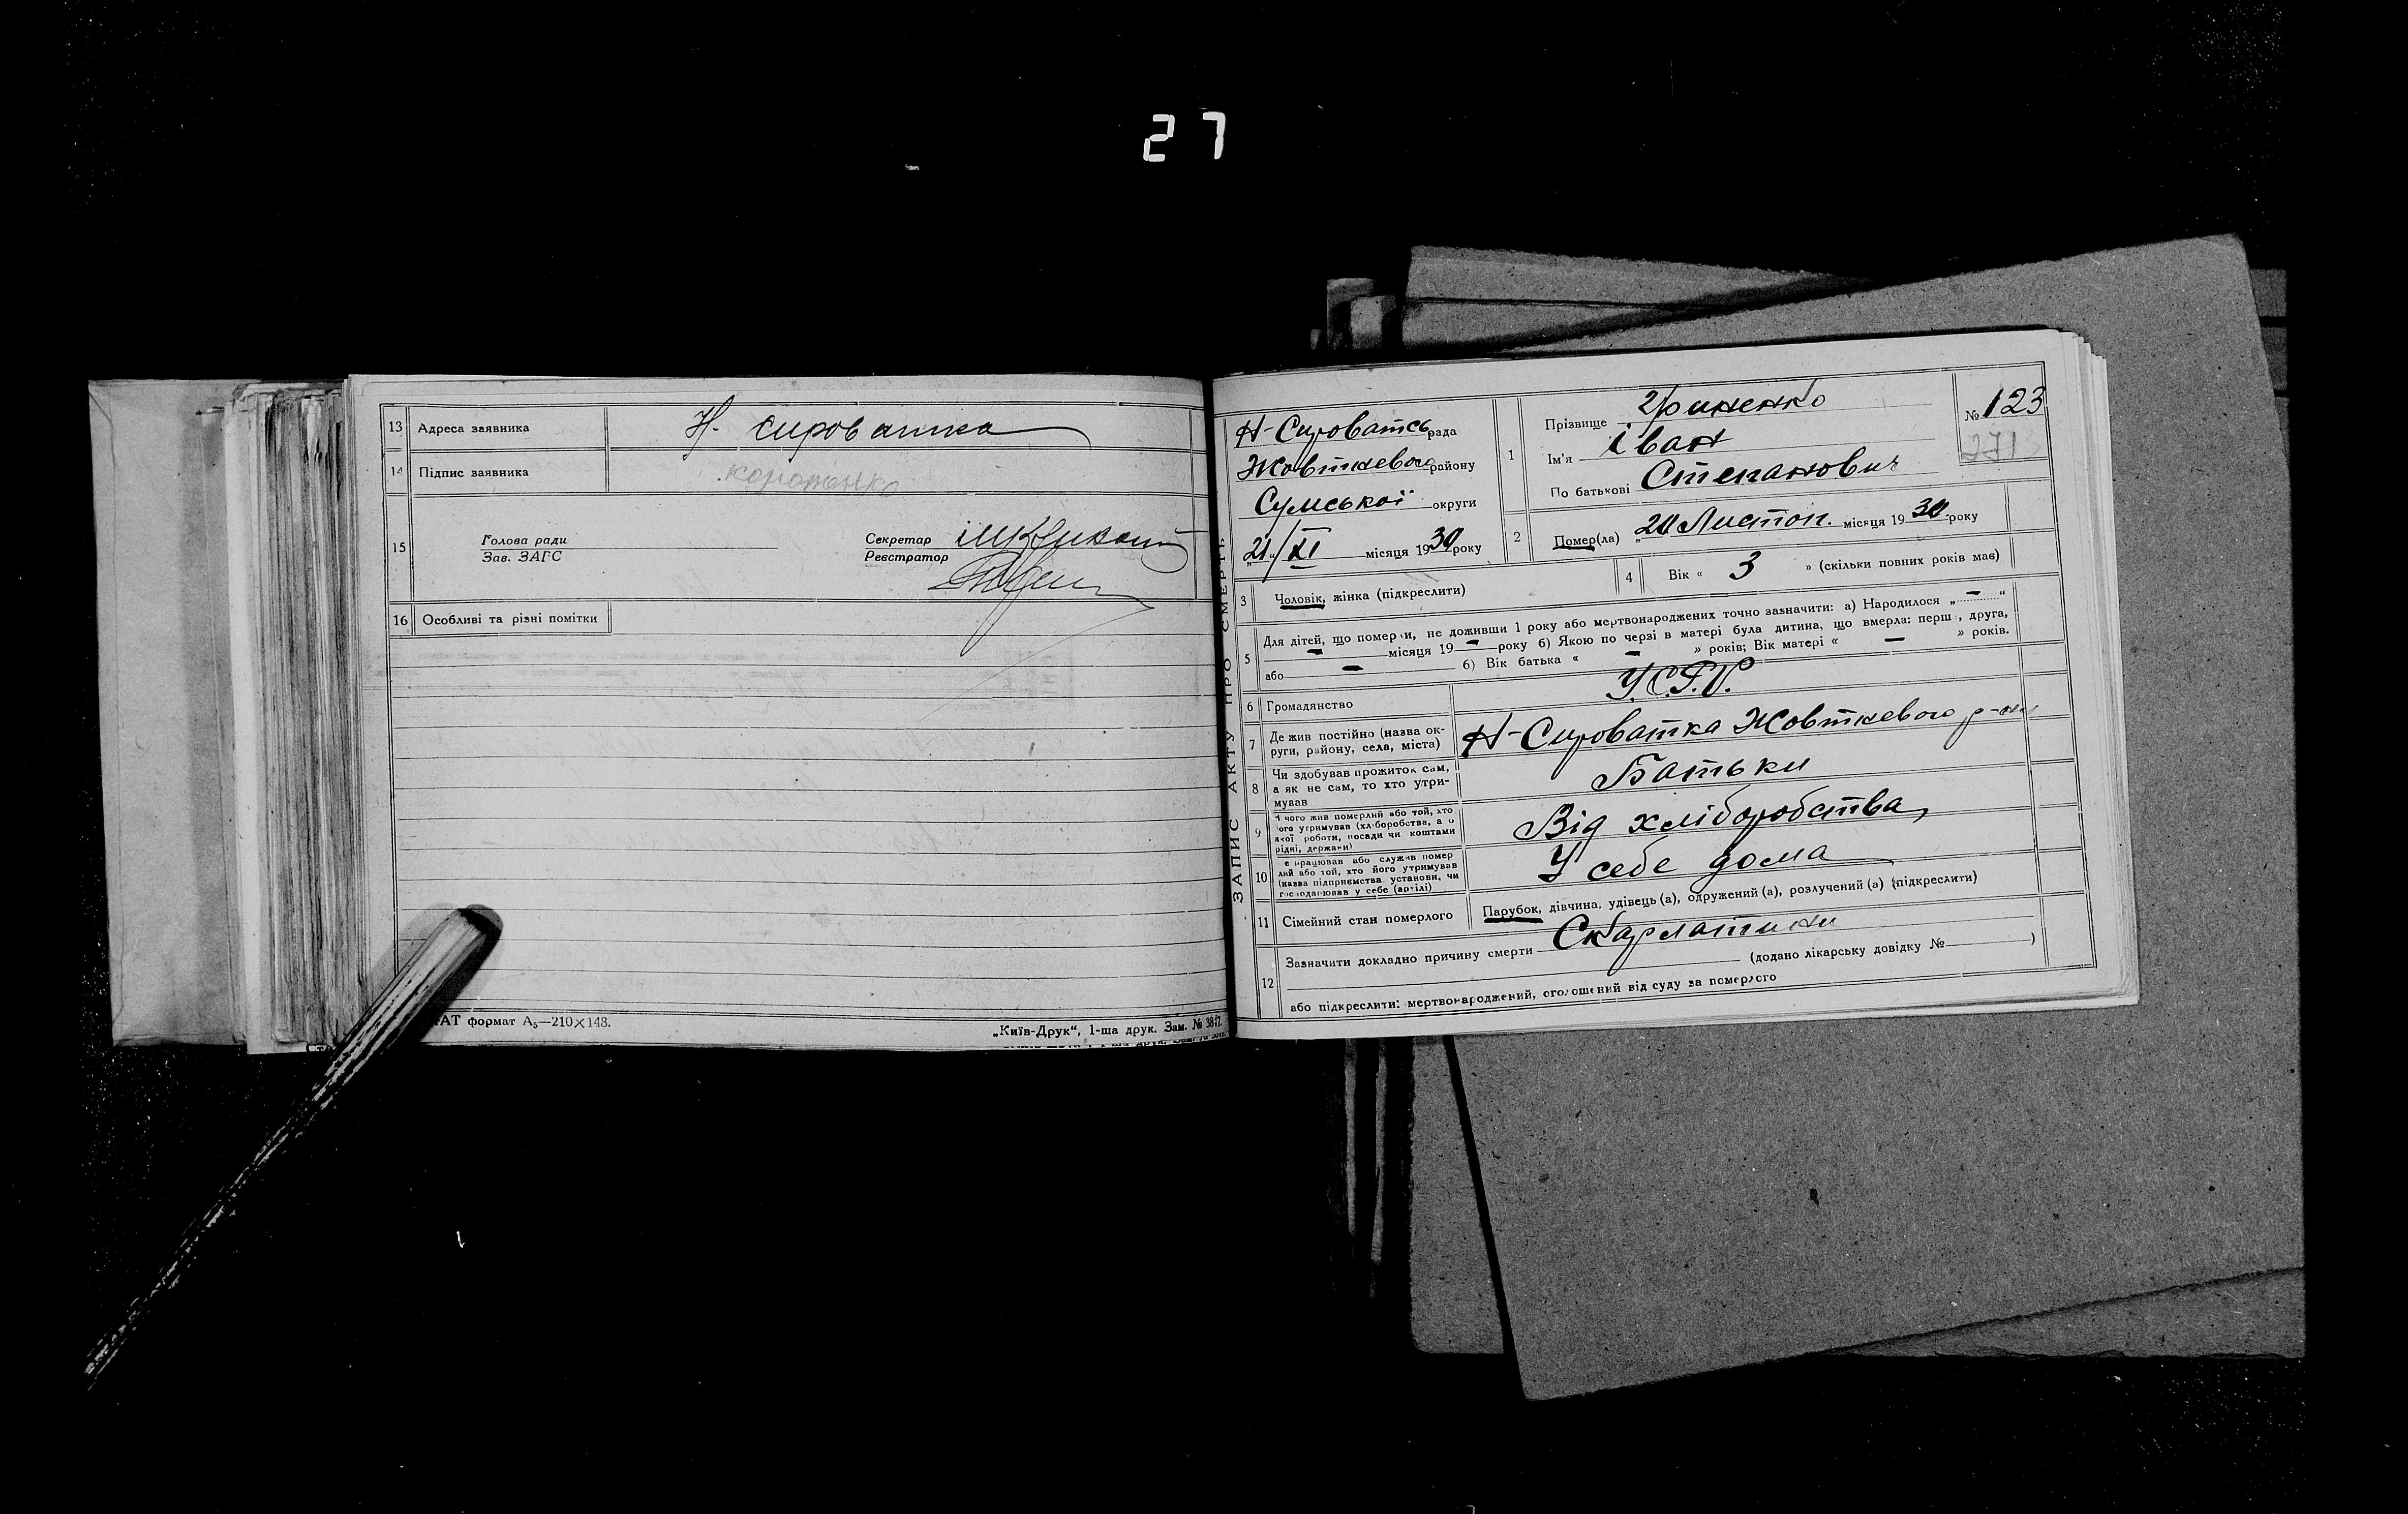 27
13 Адреса заявника Н. Сироватка
14 Підпис заявника
15 Голова ради
Зав. ЗАГС
Секретар
Реєстратор
16 Особливі та різні помітки
АТ формат А5—210×148.
„Київ-Друк“, 1-ша друк. Зам. №
ЗАПИС АКТУ ПРО СМЕРТЬ
Н-Сироватсь рада
Жовтневого району
Сумської округи
„21“/XI місяця 1930 року
1 Прізвище Гриненко
Ім'я Іван
По батькові Степанович
№ 123
271
2 Помер(ла) „20 Листоп. місяця 1930 року
3 Чоловік, жінка (підкреслити)
4 Вік « 3 » (скільки повних років мав)
5 Для дітей, що померли, не доживши 1 року або мертвонароджених точно зазначити: а) Народилося „ — “
— місяця 19 — року б) Якою по черзі в матері була дитина, що вмерла: перш, друга,
або — б) Вік батька « — » років; Вік матері « — » років.
6 Громадянство У.С.Р.Р.
7 Де жив постійно (назва ок-
руги, району, села, міста) Н-Сироватка Жовтневого р-ну
8 Чи здобував прожиток сам,
а як не сам, то хто утри-
мував Батьки
9 чого жив померлий або той, хто
його утримував (хліборобства, а о
якої роботи, посади чи коштами
рідні, держави) Від хліборобства
10 е працював або служив помер
лий або той, хто його утримував
(назва підприємства установи, чи
господарював у себе (артілі) У себе дома
11 Сімейний стан померлого Парубок, дівчина, удівець (а), одружений (а), розлучений (а) (підкреслити)
12 Зазначити докладно причину смерти Скарлатини
(додано лікарську довідку № )
або підкреслити: мертвонароджений, оголошений від суду за померлого